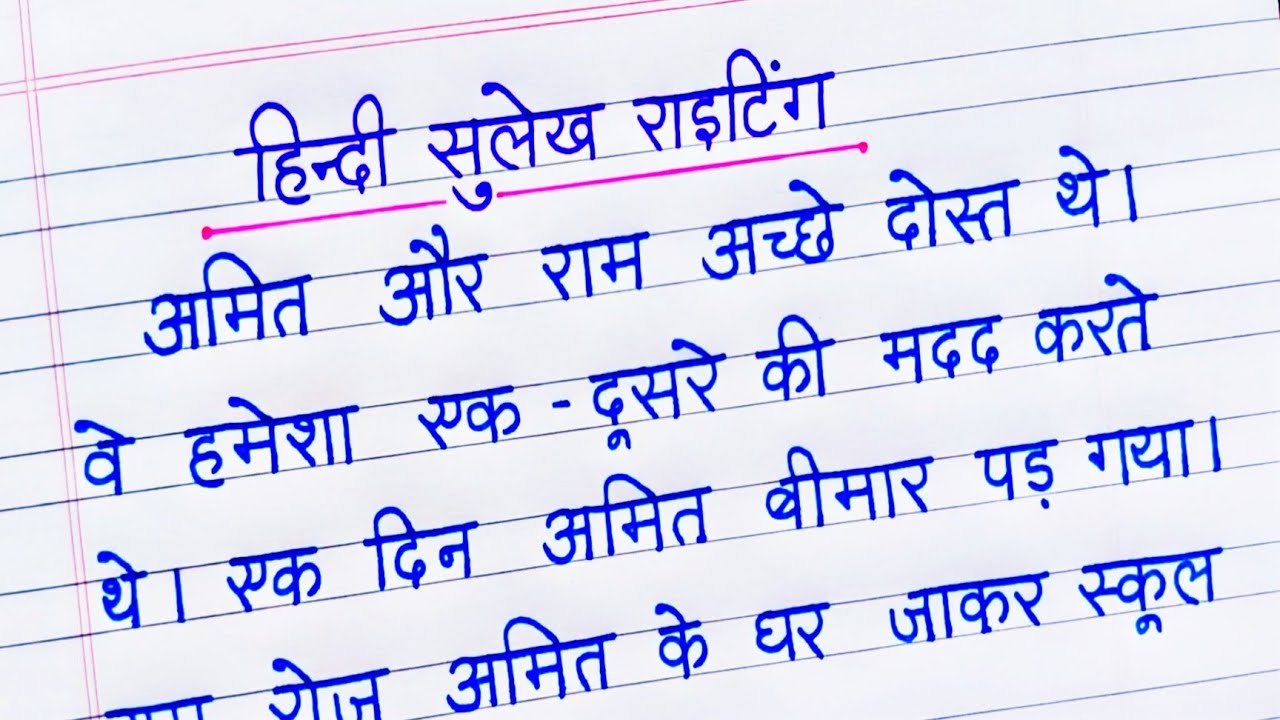 हिन्दी सुलेख राइटिंग
अमित और राम अच्छे दोस्त थे।
वे हमेशा एक - दूसरे की मदद करते
थे। एक दिन अमित बीमार पड़ गया।
राम रोज अमित के घर जाकर स्कूल